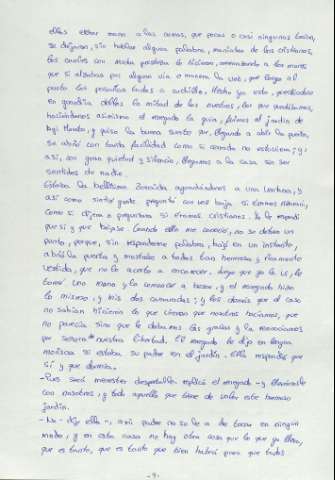 ellos echar mano a las armas, que pocas o casi ningunas tenían,
se dejaron, sin hablar alguna palabra, maniatar de los cristianos,
los cuales con mucha presteza lo hicieron, amenazando a los moros
que si alzaban por alguna vía o manera la voz, que luego al
punto los pasarían todos a cuchillo. Hecho ya esto, quedándose
en guardia dellos la mitad de los nuestros, los que quedábamos,
haciéndonos asimismo el renegado la guía, fuimos al jardín de
Agi Morato, y quiso la buena suerte que, llegando a abrir la puerta,
se abrió con tanta facilidad como si cerrada no estuviera; y,
así, con gran quietud y silencio, llegamos a la casa sin ser
sentidos de nadie.
Estaba la bellísima Zoraida aguardándonos a una ventana, y
así como sintió gente preguntó con voz baja si éramos nizarani,
como si dijera o preguntara si éramos cristianos. Yo le respondí
que sí y que bajase. Cuando ella me conoció, no se detuvo un
punto, porque, sin responderme palabra, bajó en un instante,
abrió la puerta y mostróse a todos tan hermosa y ricamente
vestida, que no lo acierto a encarecer. Luego que yo la vi, le
tomé una mano y la comencé a besar, y el renegado hizo
lo mismo, y mis dos camaradas; y los demás que el caso
no sabían hicieron lo que vieron que nosotros hacíamos, que
no parecía sino que le dábamos las gracias y la reconocíamos
por señora de nuestra libertad. El renegado le dijo en lengua
morisca si estaba su padre en el jardín. Ella respondió que
sí y que dormía.
-Pues será menester despertalle -replicó el renegado- y llevárnosle
con nosotros, y todo aquello que tiene de valor este hermoso
jardín.
-No -dijo ella-, a mi padre no se ha de tocar en ningún
modo, y en esta casa no hay otra cosa que lo que yo llevo,
que es tanto, que es tanto que bien habrá para que todos
-9-